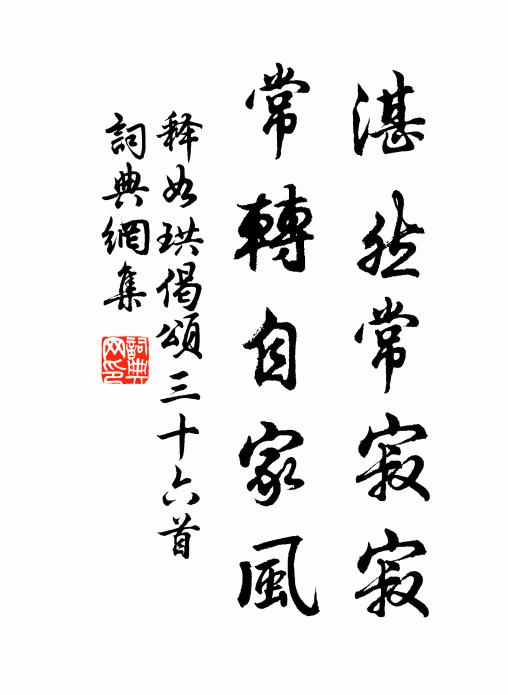 湛然常寂寂
常轉自家風
释如珙偈頌三十六首
詞典網集
詞典网印